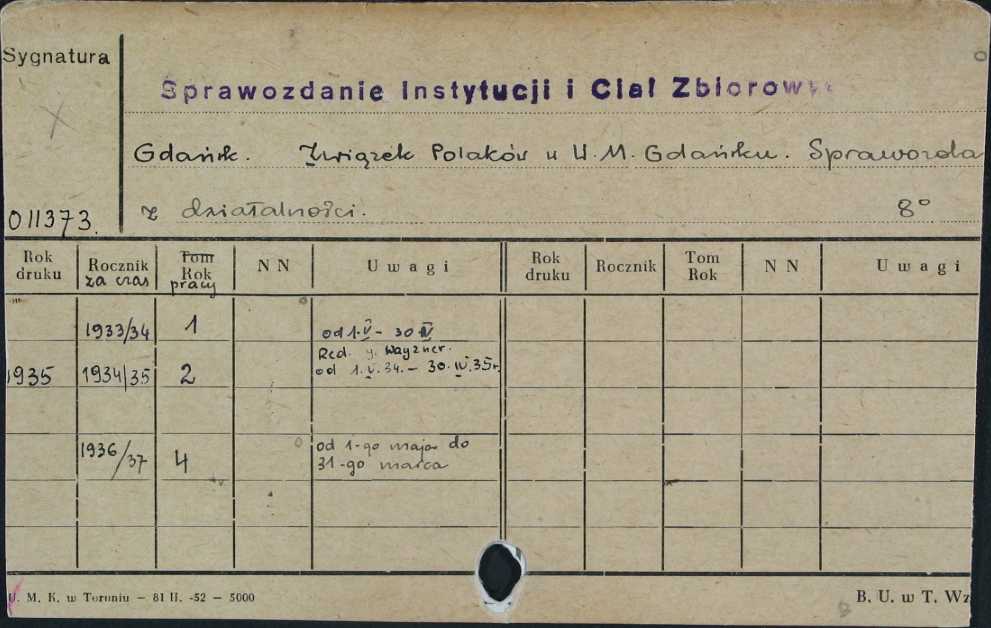 Sygnatura
Sprawozdanie Instytucji i Ciał Zbiorowy
Gdańsk. Związek Polaków w W. M. Gdańsku. Sprawozda
011373. z działalności. 8°
Rok druku Rocznik za czas Tom Rok pracy N N Uwagi Rok druku Rocznik Tom Rok N N Uwagi
1933/34 1 od 1.V - 30 IV
Red. y. Wayzner.
1935 1934/35 2 od 1.V.34. - 30.IV.35r.
1936/37 4 od 1-go maja do
31-go marca
U. M. K. w Toruniu — 81 II. -52 — 5000 B. U. w T. Wz